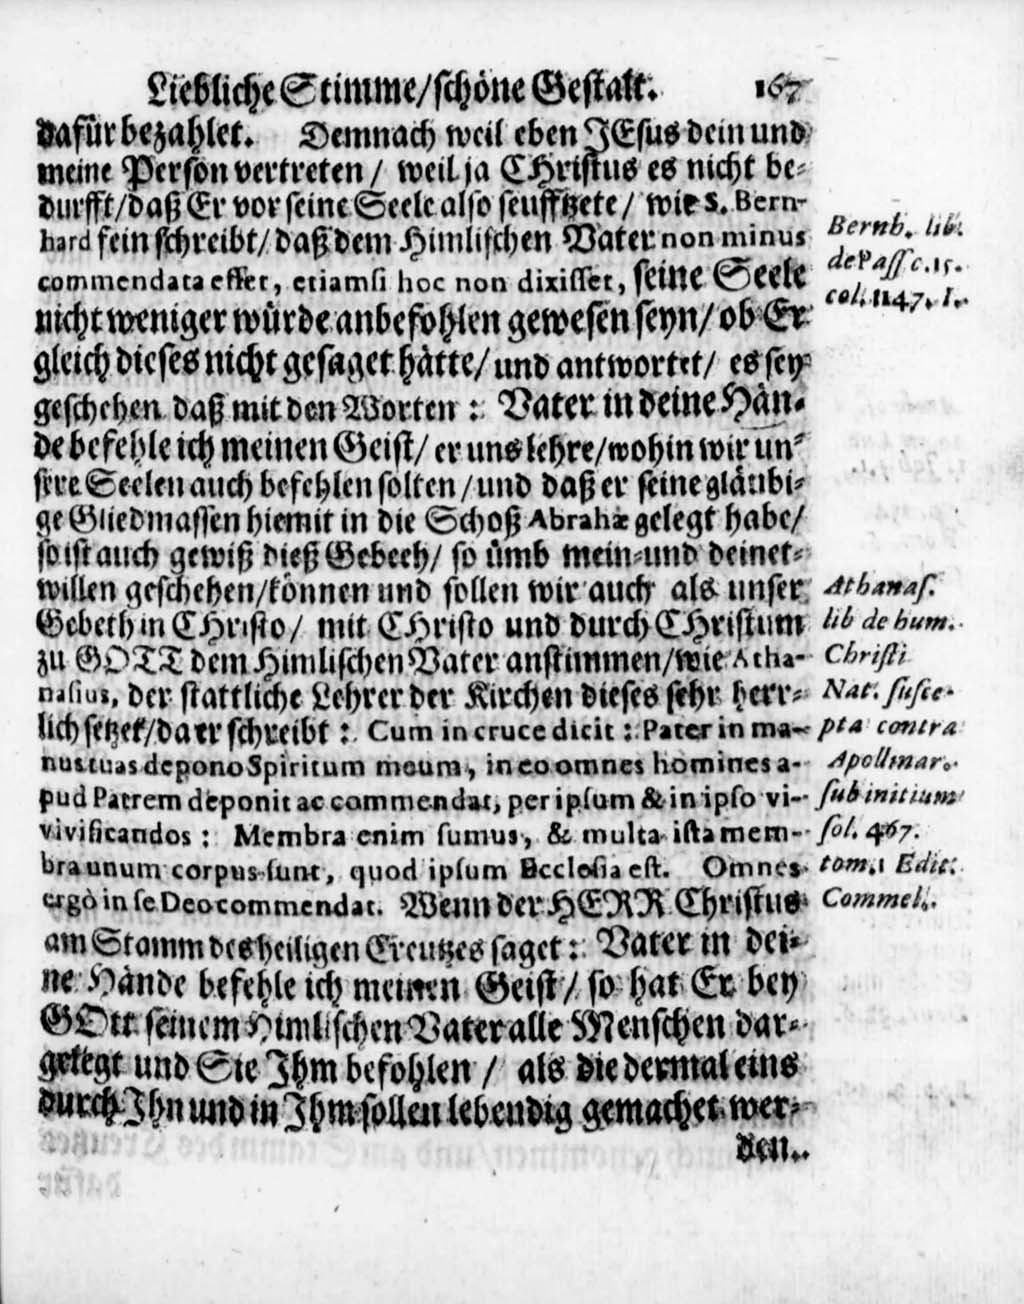 Liebliche Stimme/schöne Gestalt. 167
dafür bezahlet. Demnach weil eben JEsus dein und
meine Person vertreten / weil ja CHristus es nicht be-
durfft/daß Er vor seine Seele also seufftzete / wie S. Bern-
hard fein schreibt/daß dem Himlischen Vater non minus
commendata esset, etiamsi hoc non dixisset, seine Seele
nicht weniger würde anbefohlen gewesen seyn/ ob Er
gleich dieses nicht gesaget hätte/ und antwortet/ es sey
geschehen daß mit den Worten : Vater in deine Hän-
de befehle ich meinen Geist/ er uns lehre/wohin wir un-
sere Seelen auch befehlen solten/und daß er seine gläubi-
ge Gliedmassen hiemit in die Schoß Abrahæ gelegt habe/
so ist auch gewiß dieß Gebeeh/ so ümb mein-und deinet-
willen geschehen/können und sollen wir auch als unser
Gebeth in CHristo/ mit CHristo und durch CHristum
zu GOTT dem Himlischen Vater anstimmen/wie Atha-
nasius, der stattliche Lehrer der Kirchen dieses sehr herr-
lich setzet/da er schreibt : Cum in cruce dicit : Pater in ma-
nus tuas depono Spiritum meum, in eo omnes homines a-
pud Patrem deponit ac commendat, per ipsum & in ipso vi-
vivificandos : Membra enim sumus, & multa ista mem-
bra unum corpus sunt, quod ipsum Ecclesia est. Omnes
ergò in se Deo commendat. Wenn der HERR Christus
am Stamm des heiligen Creutzes saget : Vater in dei-
ne Hände befehle ich meinen Geist/ so hat Er bey
GOtt seinem Himlischen Vater alle Menschen dar-
gelegt und Sie Ihm befohlen / als die dermal eins
durch Ihn und in Ihm sollen lebendig gemachet wer-
den.
Bernh. lib.
de Pass c. 15.
col. 1147. I.
Athanas.
lib de hum.
Christi
Nat. susce-
pta contra
Apollinar.
sub initium
fol. 467.
tom. 1 Edit.
Commel.